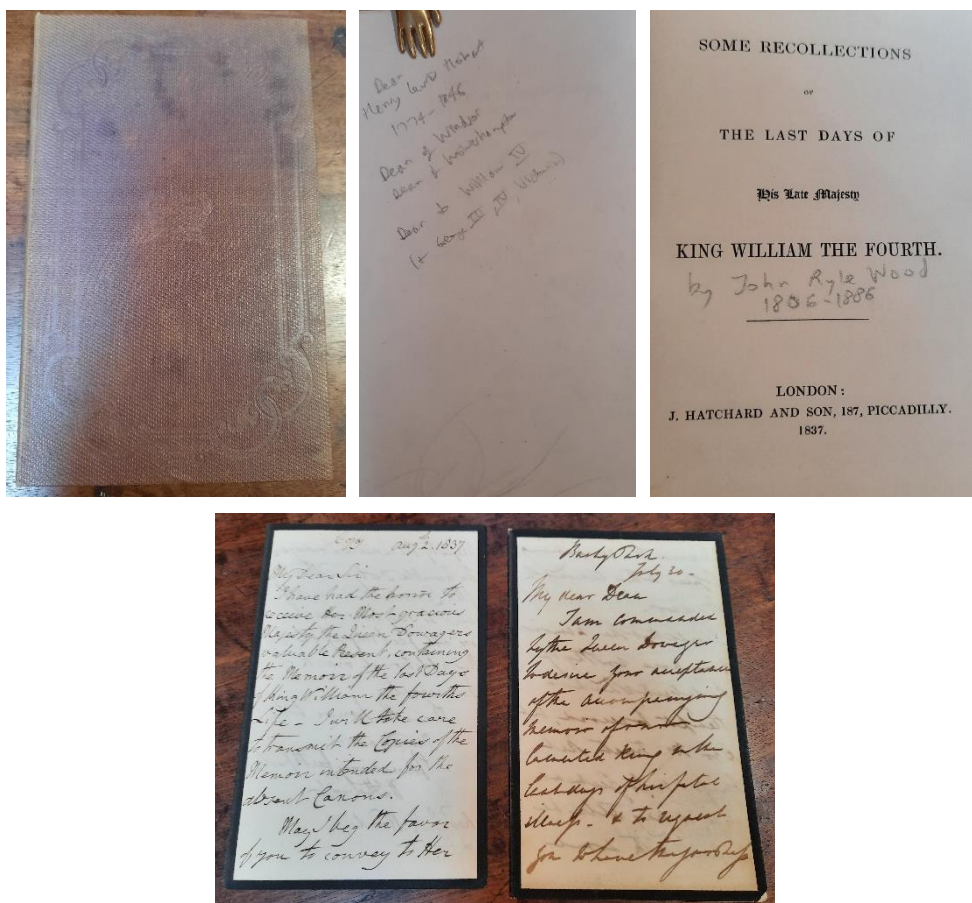 Dean
Henry Lewis Hobart
1774-1846
Dean of Windsor
Dean of Wolverhampton
Dean to William IV
(+ George III, IV, Victoria)
SOME RECOLLECTIONS
OF
THE LAST DAYS OF
His Late Majesty
KING WILLIAM THE FOURTH.
by John Ryle Wood
1806-1886
LONDON:
J. HATCHARD AND SON, 187, PICCADILLY.
1837.
Augt 2. 1837
My Dear Sir
I have had the honor to
receive Her Most gracious
Majesty the Queen Dowagers
valuable Present, containing
the Memoir of the last Days
of King William the fourths
Life - I will take care
to transmit the Copies of the
Memoir intended for the
absent Canons.
May I beg the favor
of you to convey to Her
Bushy Park
July 20-
My dear Dean
I am commanded
by the Queen Dowager
to desire your acceptance
of the accompanying
memoir of our
lamented King in the
last days of his fatal
illness - & to request
you to have the